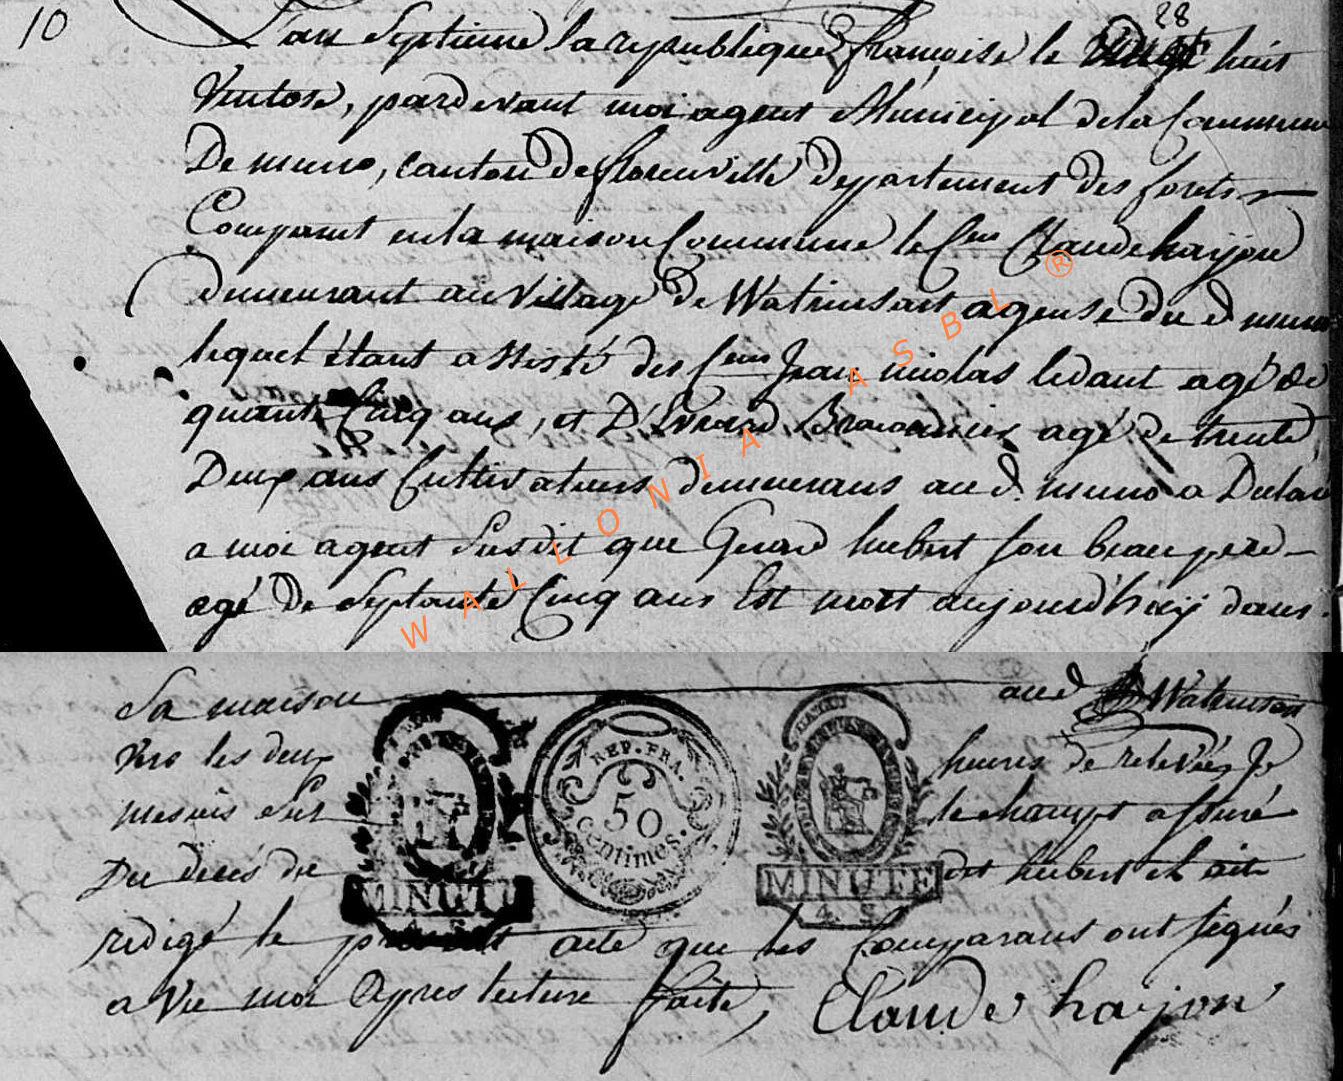 10
28
L'an Septieme la republique françoise le vingt huit
Ventose, pardevant moi agent Municipal dela Commune
De muno, canton de florenville Departement Des forets
Comparut enla maison Commune le Cen Claude hayon
demeurant au village De Watrinsart agense Du d muno
lequel étant assisté des Cens Jean nicolas ledant agé de
quarante Cinq ans, et D' Evrard agé de trente
Deux ans Cultivateurs demeurans au d. muno a Declaré
a moi agent Susdit que Gerard hubert son beau pere
agé De Septante Cinq ans Est mort aujourd'huy dans
Sa maison aud Watrinsart
vers les deux heures de relevée, Je
mesuis Sur le champt assuré
Du decés du dit hubert et ait
redigé le present acte que les Comparans ont signés
avec moi Apres lecture faite, Claude hayon
REP. FRA.
50
centimes.
MINUTE
4. S.
MINUTE
4. S.
WALLONIA ASBL ®